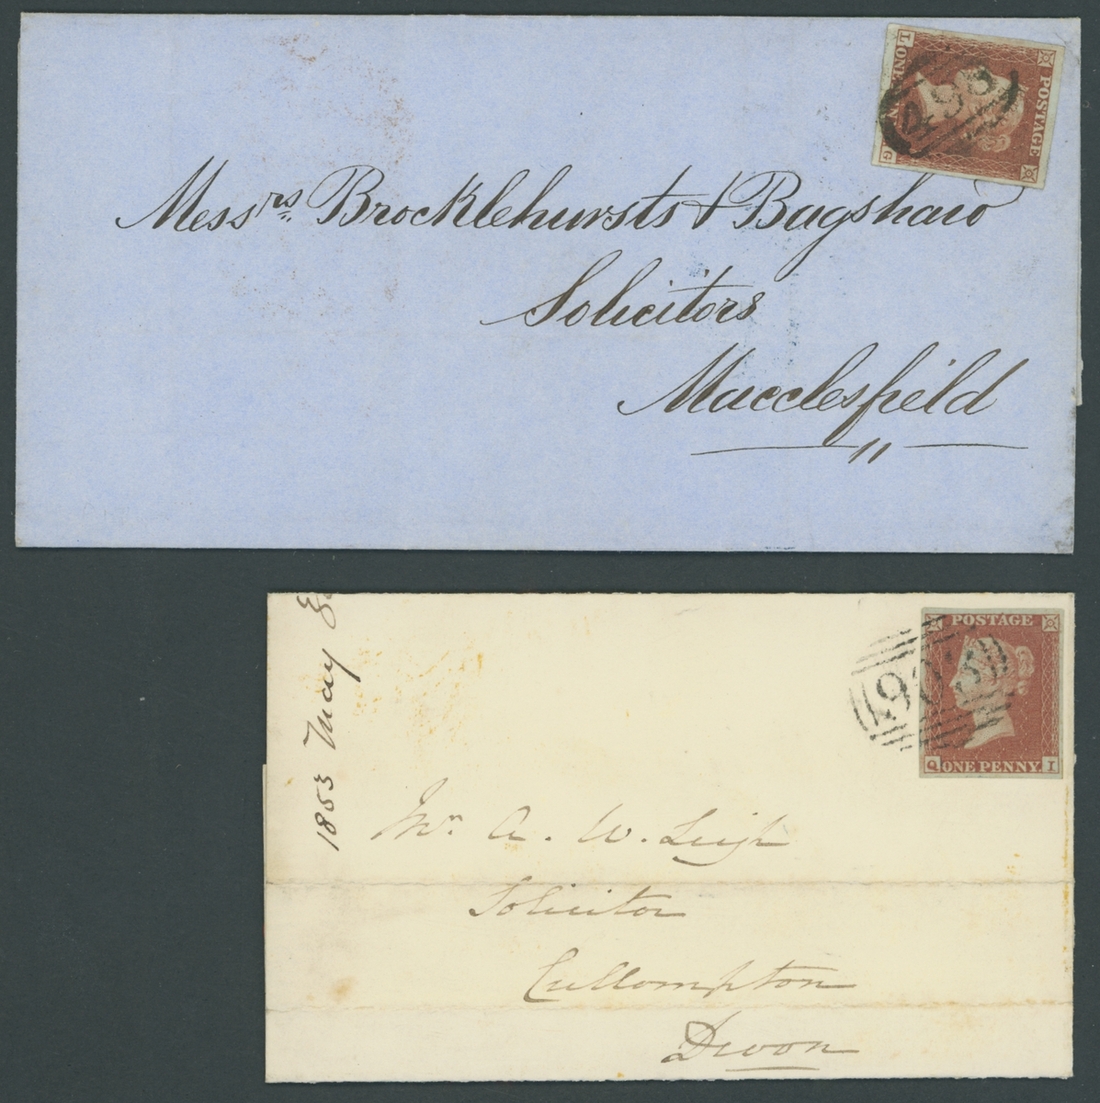 POSTAGE
L ONE
G
498
Messrs. Brocklehursts & Bagshaw
Solicitors
Macclesfield
1853 May
POSTAGE
Q ONE PENNY. I
Mr. A. W. Leigh
Solicitor
Cullompton
Devon